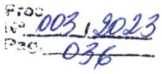 Proc
Nº 003 / 2023
Pag. 036